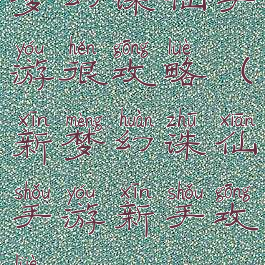 梦幻诛仙手
yóu hěn gōng lüè
游很攻略（
xīn mèng huàn zhū xiān
新梦幻诛仙
shǒu yóu xīn shǒu gōng
手游新手攻
lüè